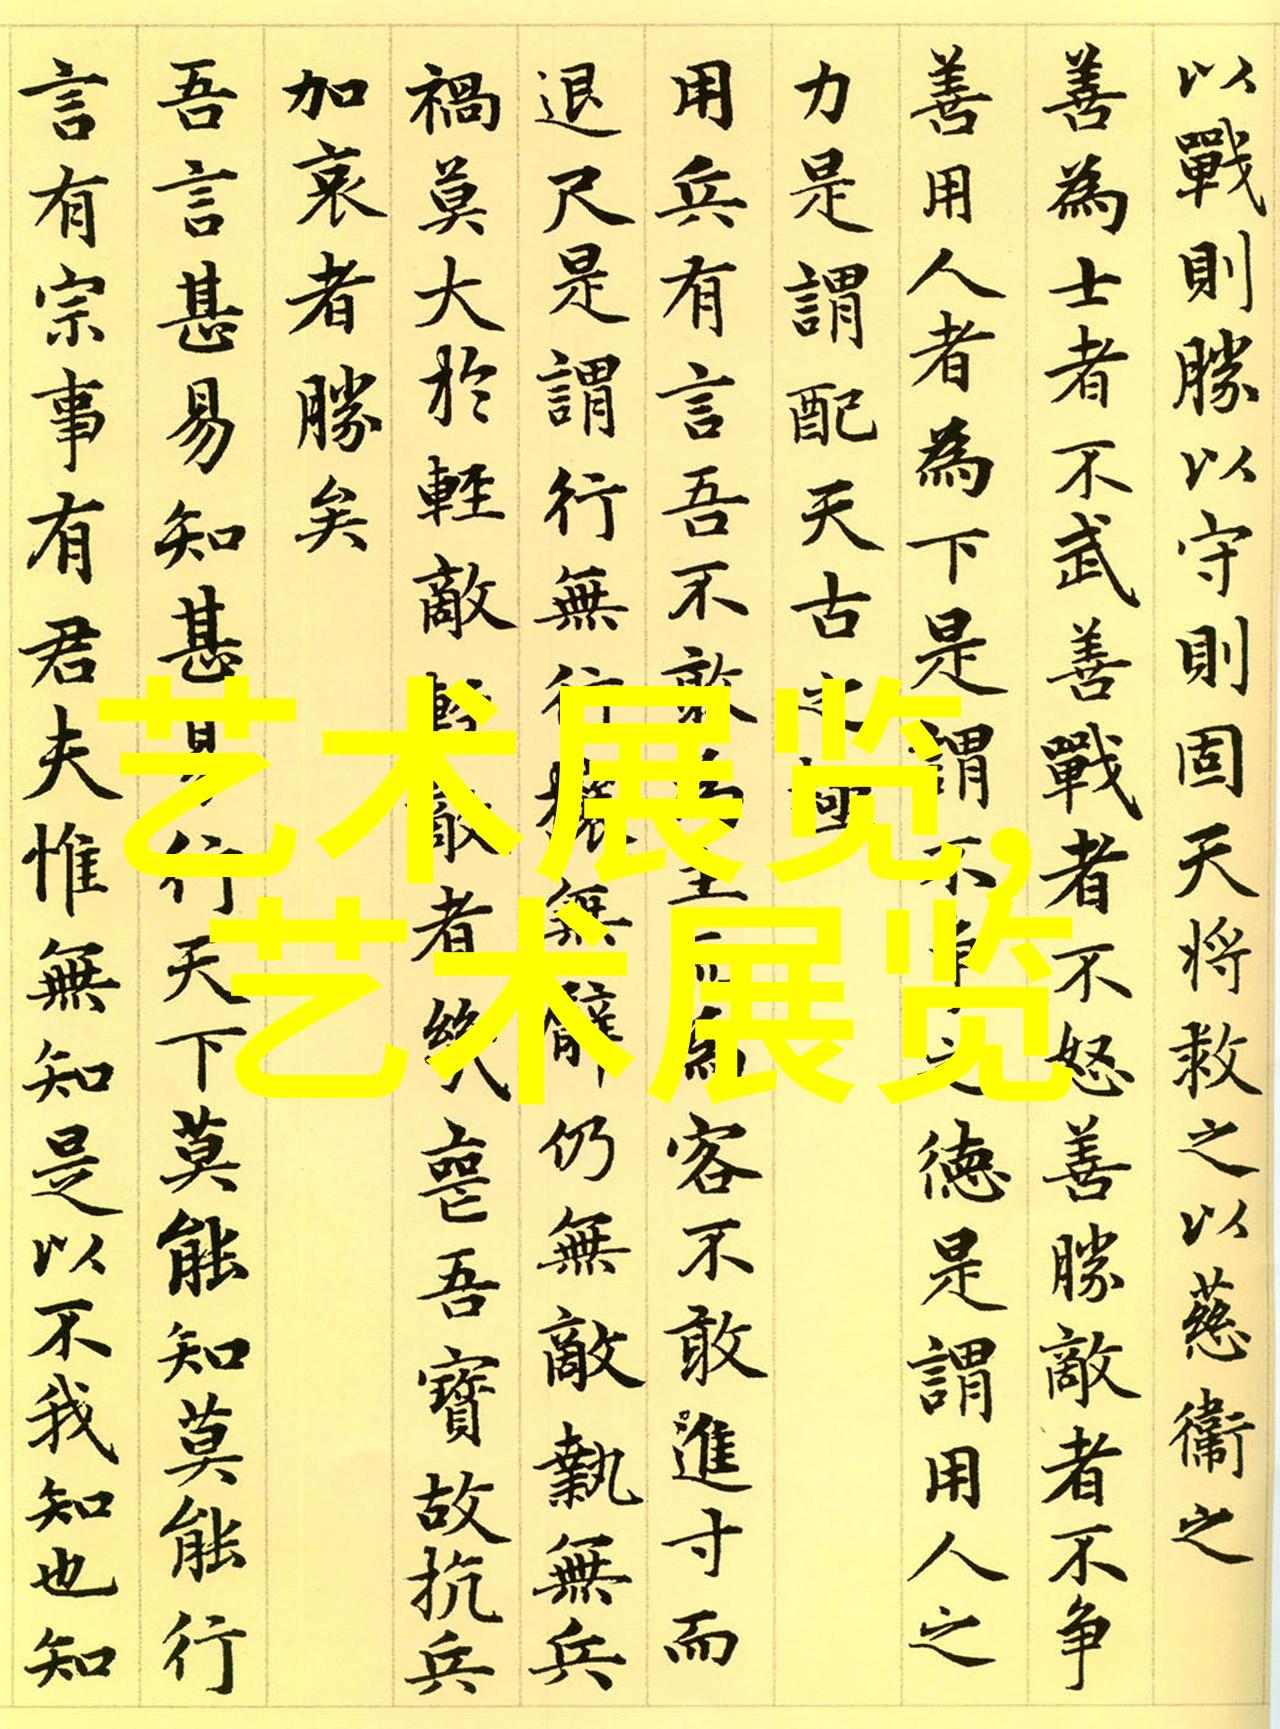 以戰則勝以守則固天將救之以慈衛之
善為士者不武善戰者不怒善勝敵者不争
善用人者為下是謂不争之德是謂用人之
力是謂配天古之極
用兵有言吾不敢為主而為客不敢進寸而
退尺是謂行無行攘無臂仍無敵執無兵
禍莫大於輕敵輕敵者幾喪吾寶故抗兵
加哀者勝矣
吾言甚易知甚易行天下莫能知莫能行
言有宗事有君夫惟無知是以不我知也知
艺术展览,
艺术展览